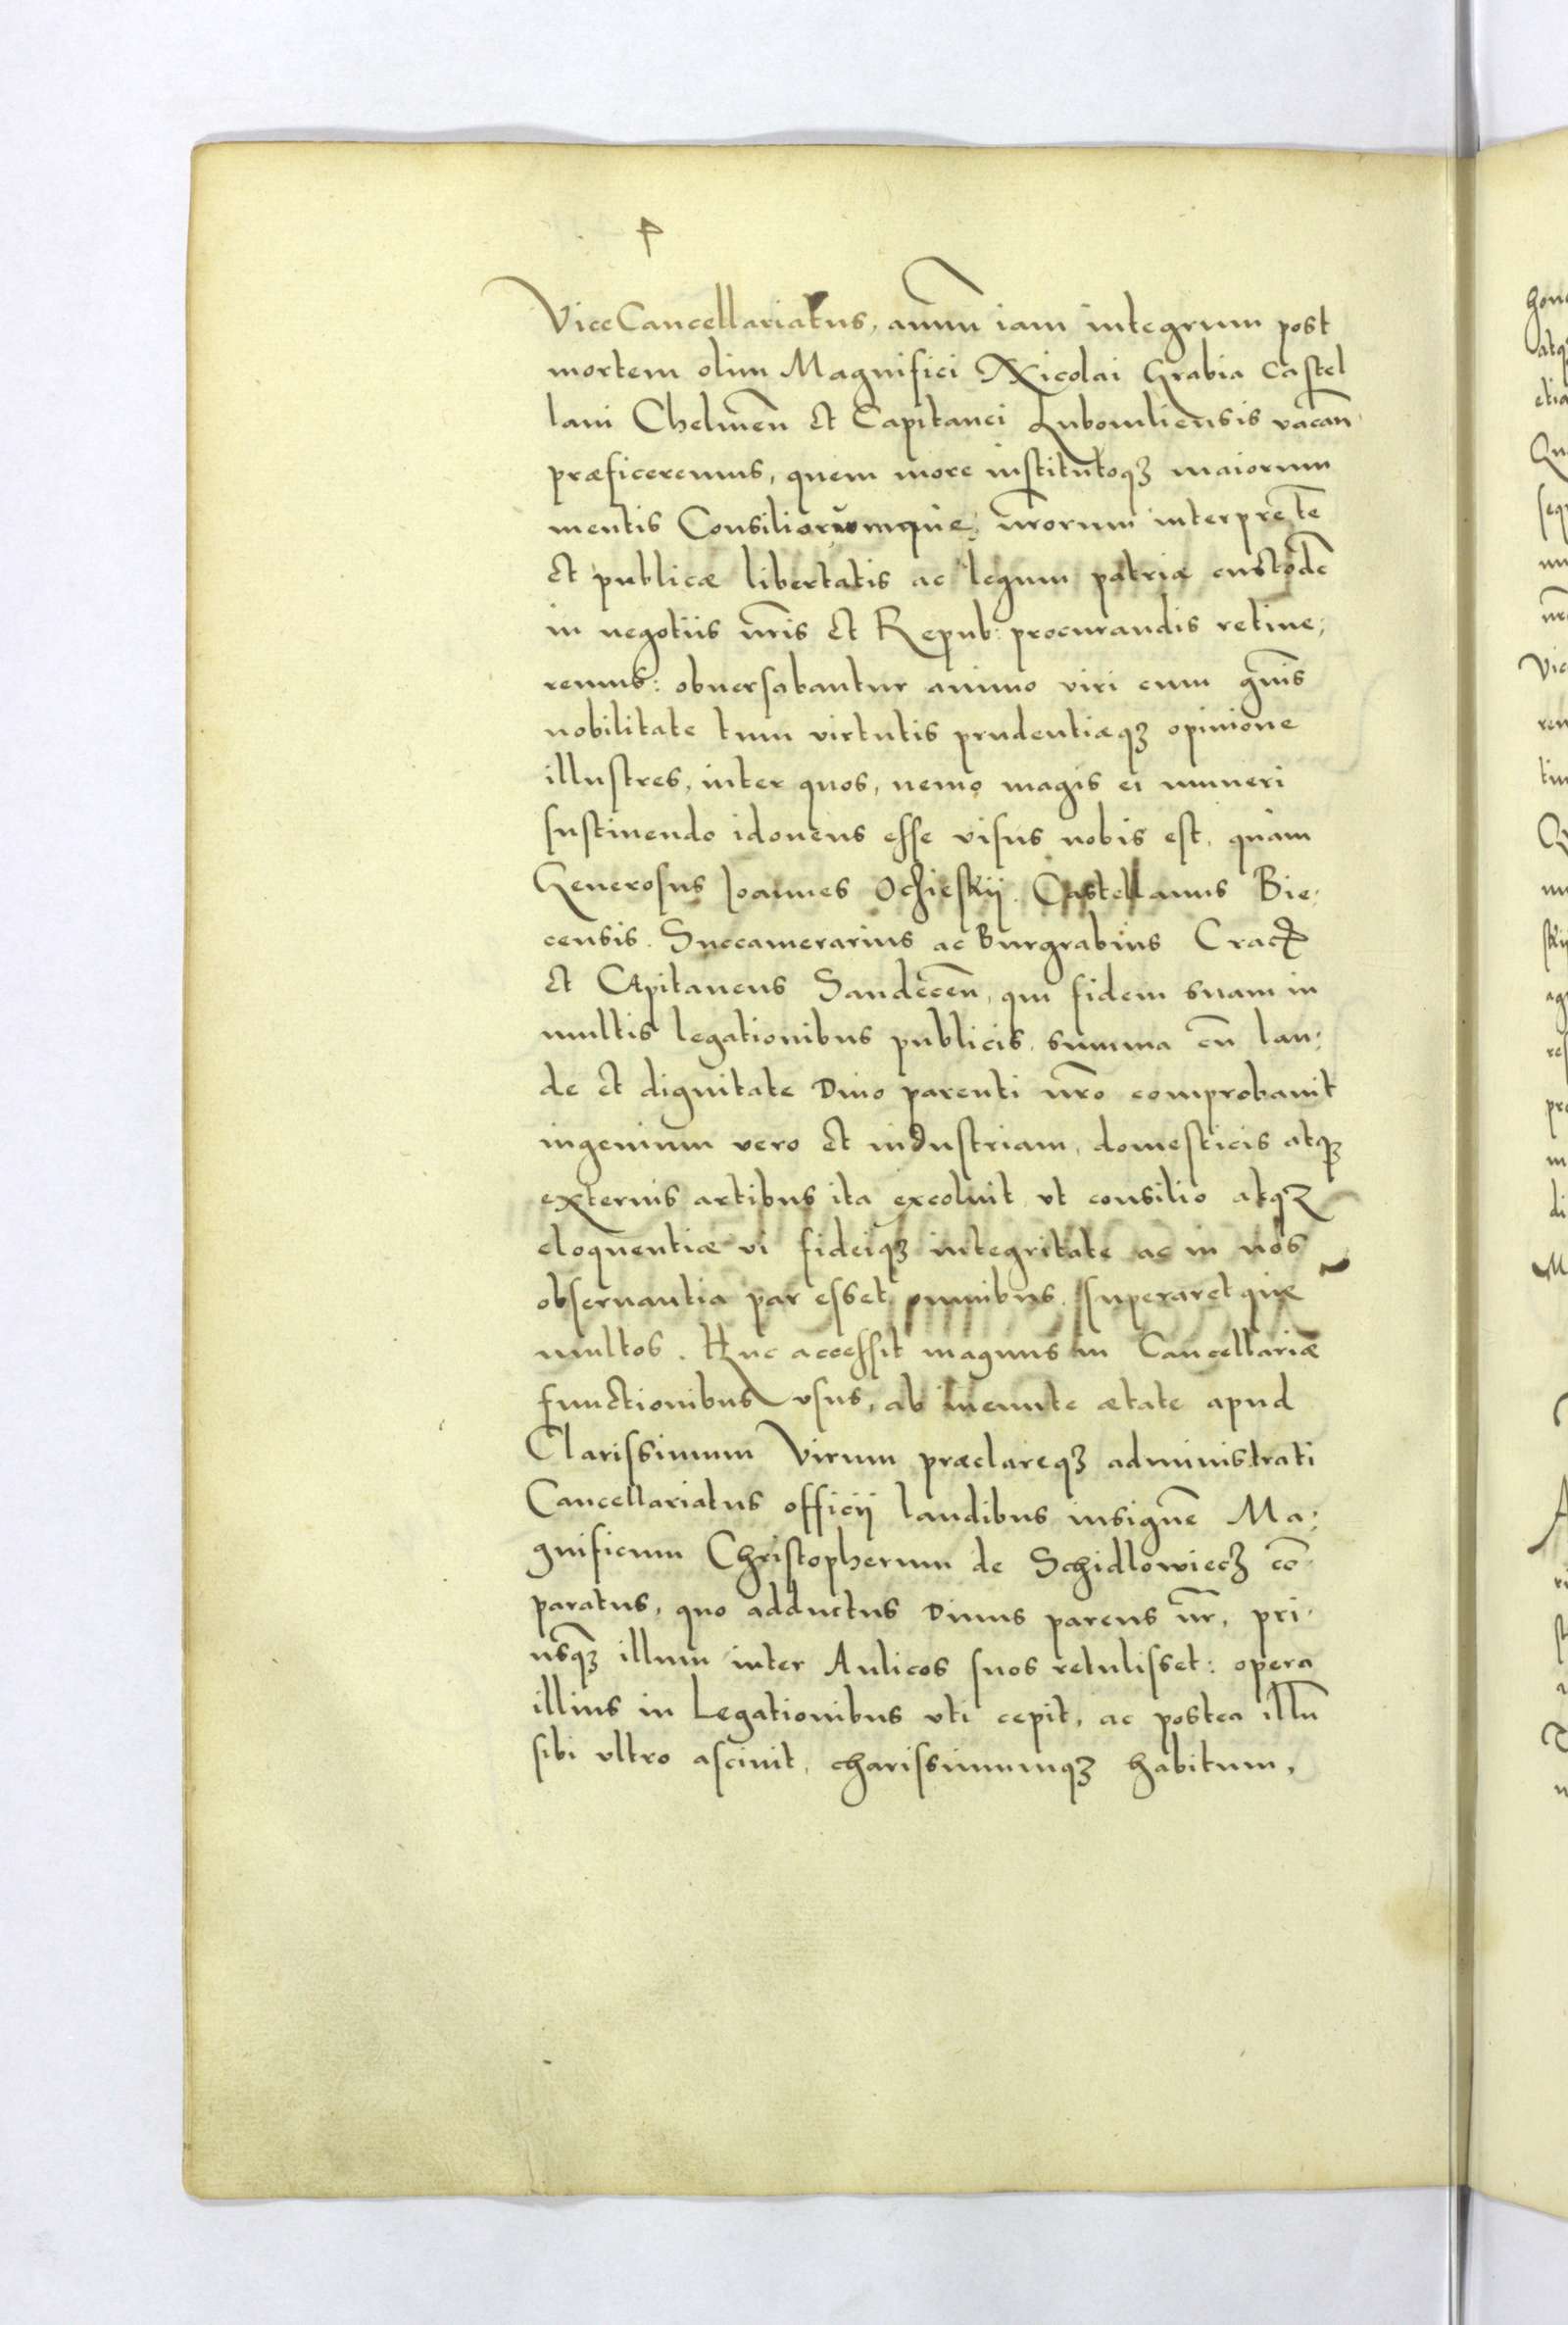 ViceCancellariatus, annum iam integrum post
mortem olim Magnifici Nicolai Grabia Castel
lani Chelmeñ et Capitanei Lubomliensis vacañ
præficeremus, quem more institutoqꝫ maiorum
mentis Consiliorumque, nr̃orum interpretẽ
et publicæ libertatis ac legum patriæ custodẽ
in negotiis nr̃is et Repub: procurandis retine;
remus: obuersabantur animo viri cum gñis
nobilitate tum virtutis prudentiæqꝫ opinione
illustres, inter quos, nemo magis ei muneri
sustinendo idoneus esse visus nobis est, quàm
Generosus Joannes Ochieskij. Castellanus Bie;
censis. Succamerarius ac Burgrabius Cracꝭ
et Capitaneus Sandeceñ, qui fidem suam in
multis legationibus publicis, summa cũ lau;
de et dignitate Diuo parenti nr̃o comprobauit
ingenium vero et industriam, domesticis atqꝫ
externis artibus ita excoluit, vt consilio atqꝫ
eloquentiæ vi fideiqꝫ integritate ac in nos
obseruantia par esset omnibus, superaretque
multos. Huc accessit magnus in Cancellariæ
functionibus vsus, ab ineunte ætate apud
Clarissimum Virum præclareqꝫ administrati
Cancellariatus officij laudibus insignẽ Ma;
gnificum Christopherum de Schidlowiecz cõ
paratus, quo adductus Diuus parens nr̃, pri
usqꝫ illum inter Aulicos suos retulisset: opera
illius in Legationibus vti cepit, ac postea illũ
sibi vltro asciuit, charissimumqꝫ habitum,